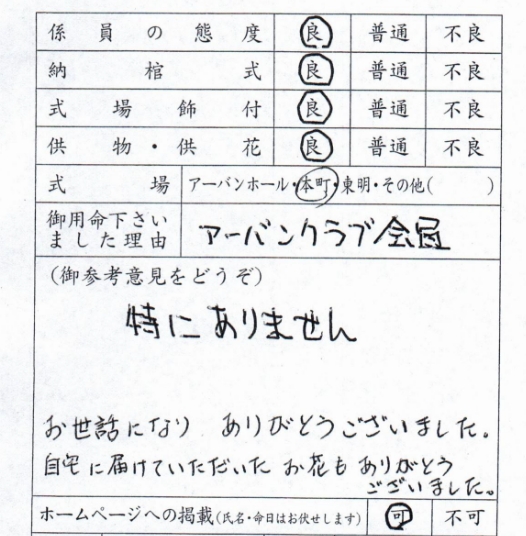 係員の態度 良 普通 不良
納棺式 良 普通 不良
式場飾付 良 普通 不良
供物・供花 良 普通 不良
式場 アーバンホール・本町・東明・その他( )
御用命下さい
ました理由 アーバンクラブ会員
(御参考意見をどうぞ)
特にありません
お世話になり ありがとうございました。
自宅に届けていただいた お花も ありがとう
ございました。
ホームページへの掲載(氏名・命日はお伏せします) 可 不可